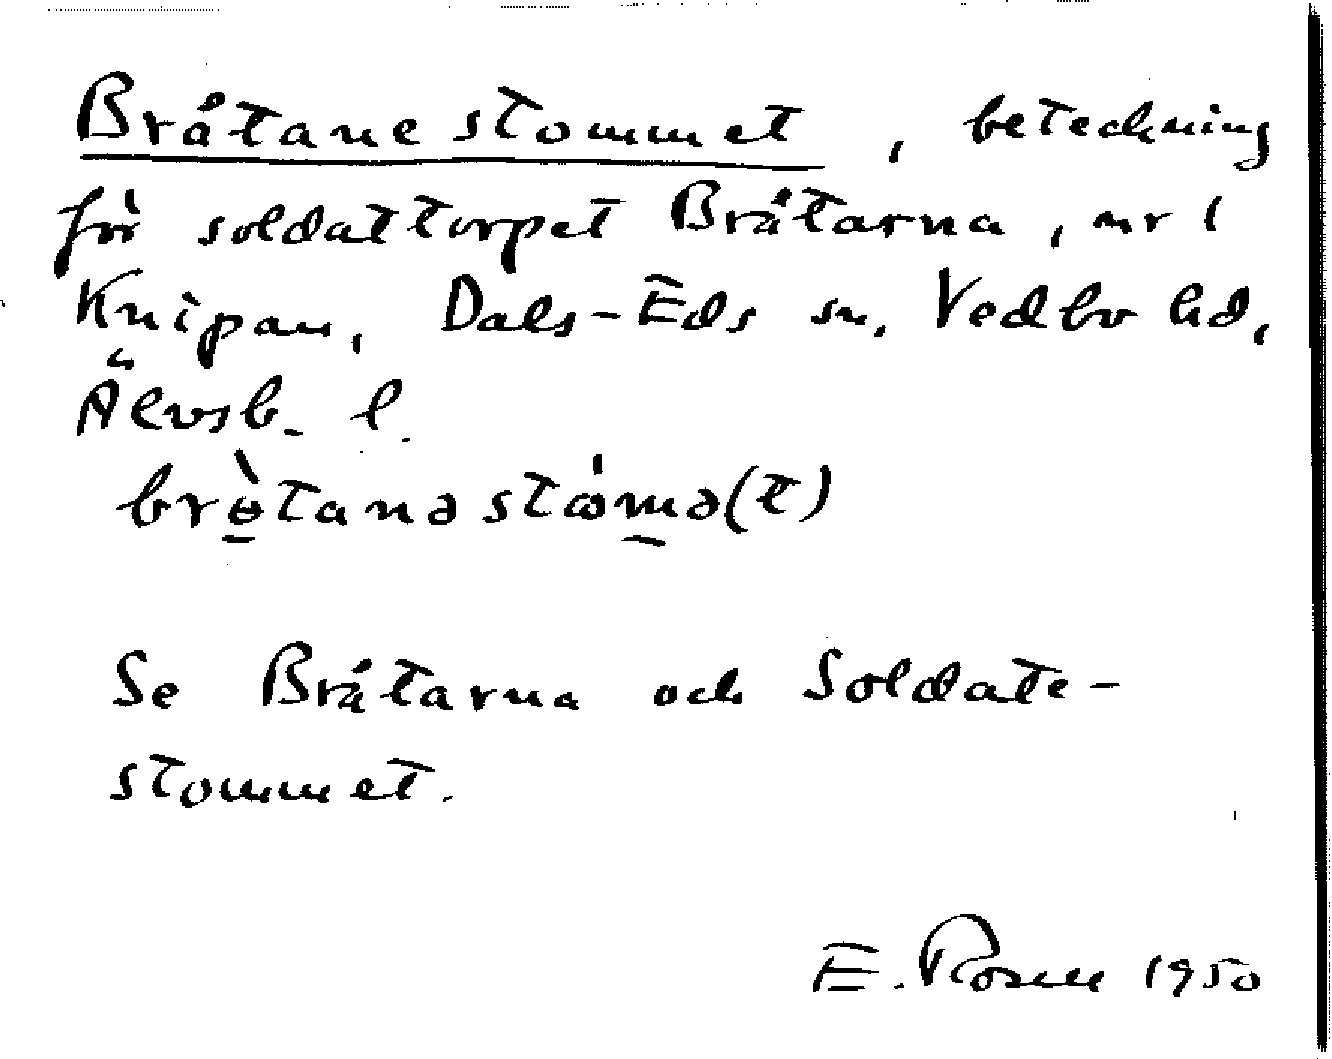 Bråtanestommet, beteckning
för soldattorpet Bråtarna, nr 1
Knipan, Dals-Eds sn, Vedbo hd,
Älvsb. l.
brò̱tanəstɷ́m̱ə(t)
Se Bråtarna och Soldate-
stommet.
E. Rosell 1950